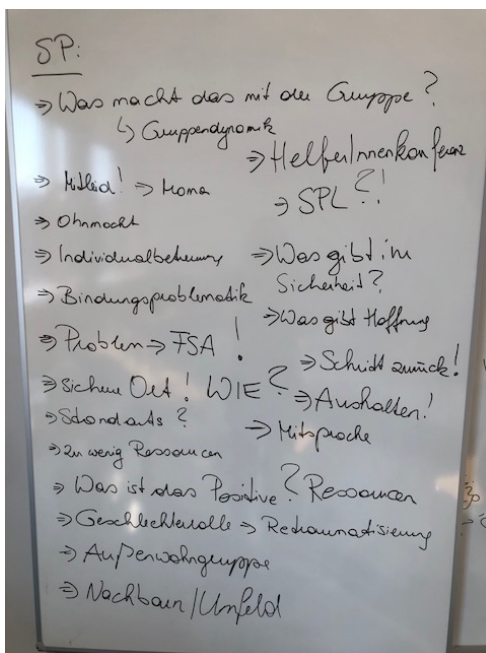 SP:
⇒ Was macht das mit der Gruppe?
↳ Gruppendynamik
⇒ HelferInnenkonferenz
⇒ Mitleid! ⇒ Mama
⇒ SPL?!
⇒ Ohnmacht
⇒ Individualbetreuung
⇒ Was gibt im
Sicherheit?
⇒ Bindungsproblematik
⇒ Was gibt Hoffnung
⇒ Problem ⇒ FSA!
⇒ Schritt zurück!
⇒ Sichere Ort! WIE?
⇒ Aushalten!
⇒ Standards?
⇒ Mitsprache
⇒ zu wenig Ressourcen
⇒ Was ist das Positive? Ressourcen
⇒ Geschlechterrolle ⇒ Retraumatisierung
⇒ Außenwohngruppe
⇒ Nachbarn/Umfeld